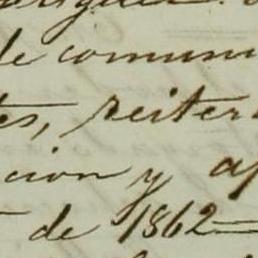 de comuni
tes, reiter
cion y ap
de 1862